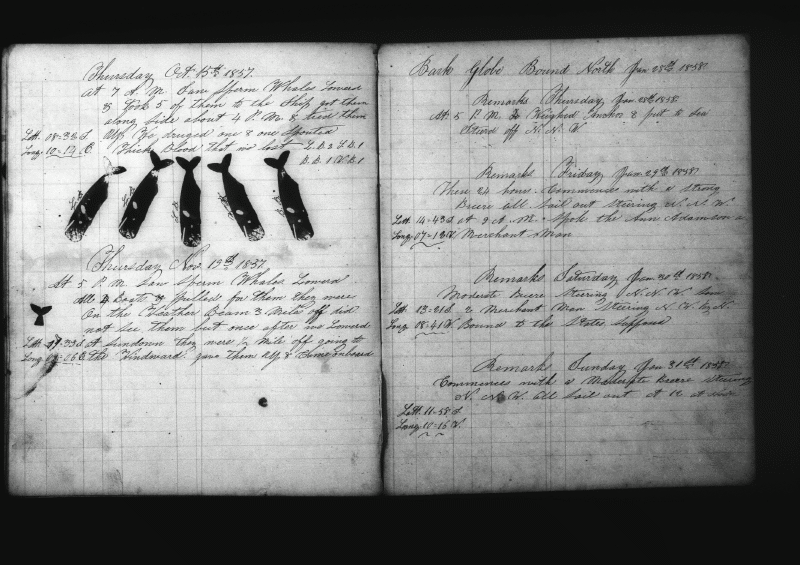 Thursday Oct. 15th 1857.
at 7 A. M. Saw Sperm Whales Lowerd
& Took 5 of them to the Ship got them
along side about 4 P. M. & tried them
Up. Zo druged one & one Spouted
Latt. 08=33 S.
Long. 10=14 E.
Thick Blood that we lost L.B.2 S.B.1
B.B.1 W.B.1
Thursday Nov. 19th 1857.
At 5 P. M. Saw Sperm Whales Lowerd
All 4 Boats & pulled for them they were
On the Weather Beam 3 Miles off did
not see them but once after we Lowered
at sundown they were ½ Mile off going to
the Windward gave them Up & Came onboard
Latt. 07=33 S.
Long. 06 E.
Bark Globe Bound North Jan 28th 1858
Remarks Thursday Jan 28th 1858.
At 5 P. M. Weighed Anchor & put to Sea
Steerd off N. N. W.
Remarks Friday Jan 29th 1858.
These 24 hours Commences with a strong
Breeze all Sail out Steering N. N. W.
Latt. 14=43 S. at 9 A. M. Spoke the Ann Adamson a
Long. 07=13 W. Merchant Man
Remarks Saturday Jan 30th 1858.
Moderate Breeze Steering N. N. W. Saw
Latt. 13=21 S. 2 Merchant Man Steering N. W. by N.
Long. 08=41 W. Bound to the States
Remark Sunday Jan 31st 1858.
Commences with a Moderate Breeze steering
N. N. W. All Sail out At
Latt. 11=58 S.
Long. 10=15 W.